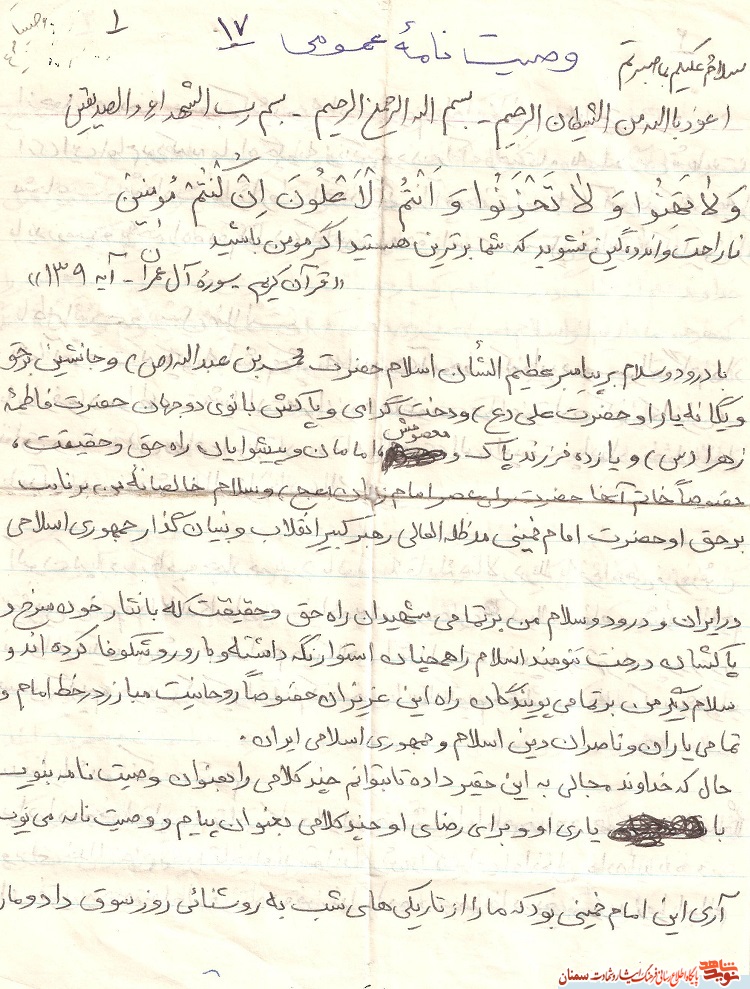 وصیت نامهٔ عمومی ۱۷ ۱
سلام علیکم بما صبرتم
اعوذ باالله من الشیطان الرجیم - بسم الله الرحمن الرحیم - بسم رب الشهداء والصدیقین
وَلا تَهِنُوا وَ لا تَحْزَنُوا وَ اَنْتُمُ الْاَعْلُونَ اِنْ كُنْتُمْ مُؤمِنینَ
ناراحت و اندوهگین نشوید که شما برترین هستید اگر مومن باشید
«قرآن کریم سورهٔ آل عمران - آیه ۱۳۹»
با درود و سلام بر پیامبر عظیم الشأن اسلام حضرت محمد بن عبدالله (ص) و جانشین برحق
و یگانه یار او حضرت علی (ع) و دخت گرامی و پاکش بانوی دو جهان حضرت فاطمهٔ
زهرا (س) و یازده فرزند پاک و معصومش، امامان و پیشوایان راه حق و حقیقت،
خصوصاً خاتم آنها حضرت ولی عصر امام زمان (عج) و سلام خالصانهٔ من بر نایب
بر حق او حضرت امام خمینی مدظله العالی رهبر کبیر انقلاب و بنیان گذار جمهوری اسلامی
در ایران و درود و سلام من بر تمامی شهیدان راه حق و حقیقت که با نثار خون سرخ و
پاکشان درخت تنومند اسلام را همچنان استوار نگه داشته و بارور و شکوفا کرده اند و
سلام دیگر من بر تمامی پویندگان راه این عزیزان خصوصاً روحانیت مبارز در خط امام و
تمامی یاران و ناصران دین اسلام و جمهوری اسلامی ایران.
حال که خداوند مجالی به این حقیر داده تا بتوانم چند کلامی را بعنوان وصیت نامه بنویسم
با یاری او و برای رضای او چند کلامی بعنوان پیام و وصیت نامه می نویسم
آری این امام خمینی بود که ما را از تاریکی های شب به روشنائی روز سوق داد و ما را
نوید شاهد
پایگاه اطلاع رسانی فرهنگ ایثار و شهادت سمنان